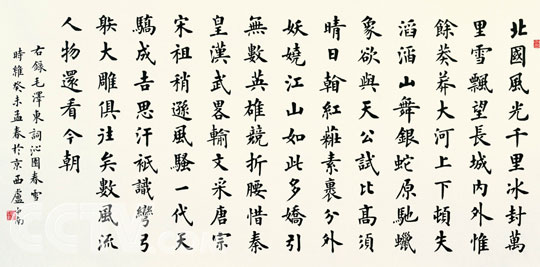 北國風光千里冰封萬
里雪飄望長城內外惟
餘莽莽大河上下頓失
滔滔山舞銀蛇原馳蠟
象欲與天公試比高須
晴日看紅糚素裹分外
妖嬈江山如此多嬌引
無數英雄競折腰惜秦
皇漢武略輸文采唐宗
宋祖稍遜風騷一代天
驕成吉思汗祇識彎弓
䠶大雕俱往矣數風流
人物還看今朝
右錄毛澤東詞沁園春雪
時維癸未孟春於京西盧中南
CCTV.com